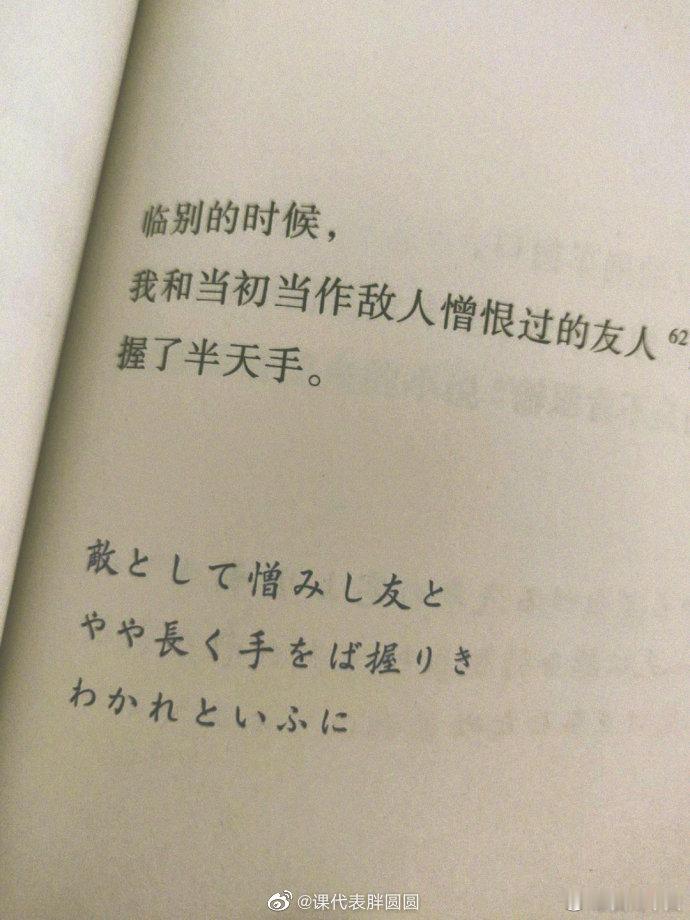 临别的时候，
我和当初当作敌人憎恨过的友人62
握了半天手。
敵として憎みし友と
やや長く手をば握りき
わかれといふに
@课代表胖圆圆